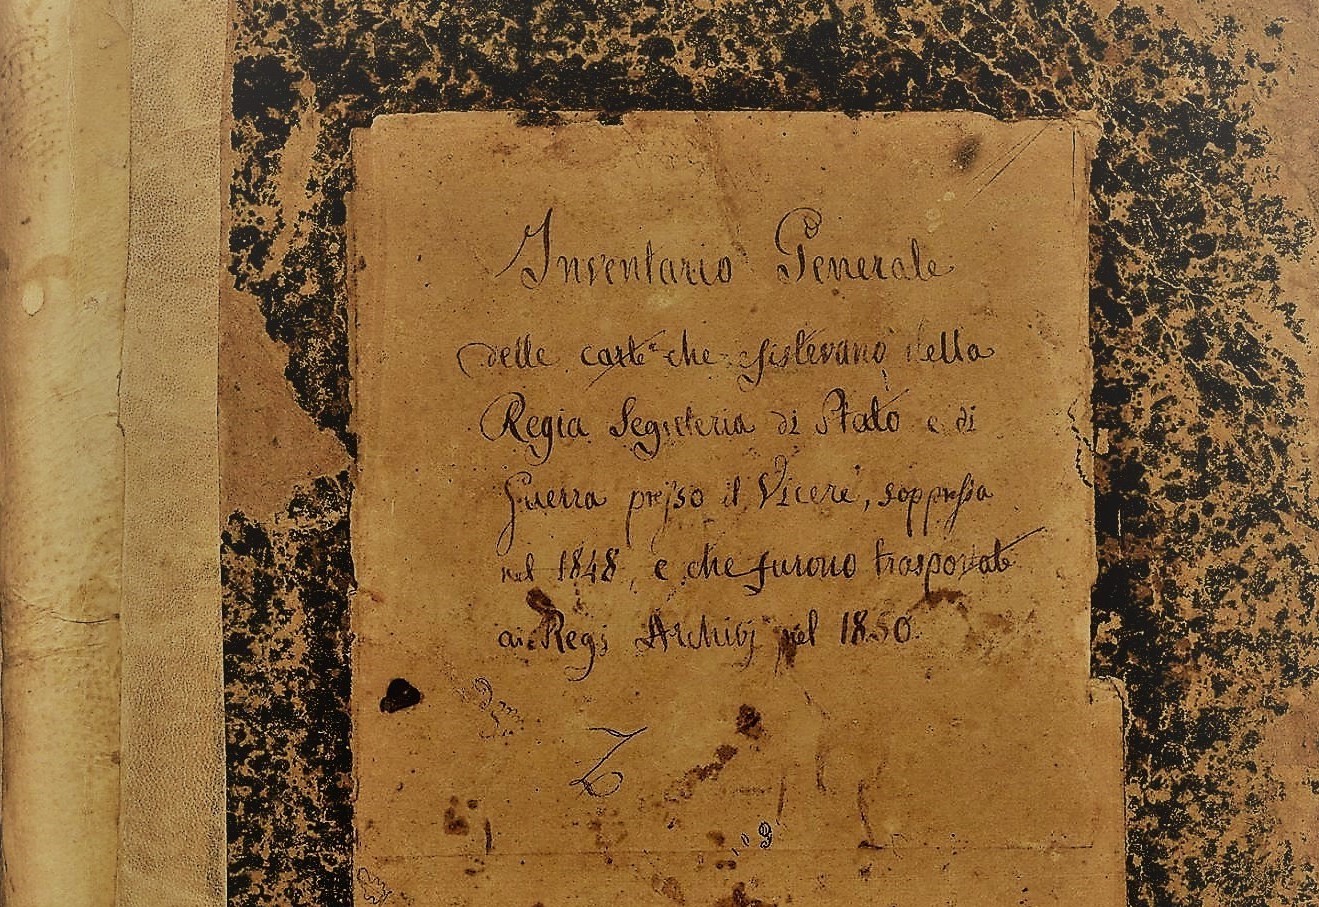 Inventario Generale
delle carte che esistevano nella
Regia Segreteria di Stato e di
Guerra presso il Viceré, soppressa
nel 1848, e che furono trasportate
ai Regj Archivj nel 1850.